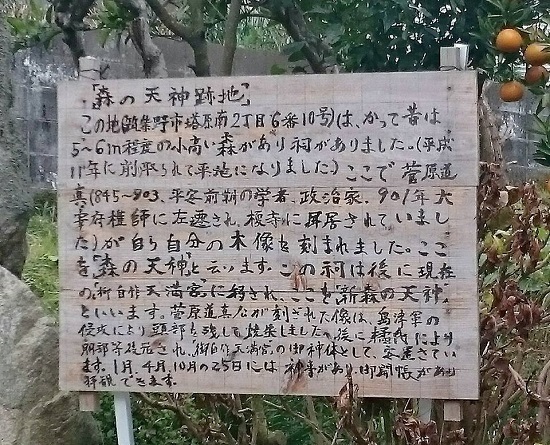 「森の天神跡地」
この地(筑紫野市塔原南2丁目6番10号)は、かって昔は
5～6m程度の小高い森があり祠がありました。(平成
11年に削取られて平地になりました)ここで菅原道
真(845～903、平安前期の学者、政治家、901年大
宰存権師に左遷され、榎寺に屏居されていまし
た)が自ら自分の木像を刻まれました。ここ
を「森の天神」と云います。この祠は後に現在
の「御自作天満宮」に移され、ここを「新森の天神」
といいます。菅原道真公が刻された像は、島津軍の
侵攻により頭部を残して焼失しました。後に橘氏により
胴部等復元され、御自作天満宮の御神体として、安置さてい
ます。1月、4月、10月の25日には神事があり、御開帳があり
拝観できます。